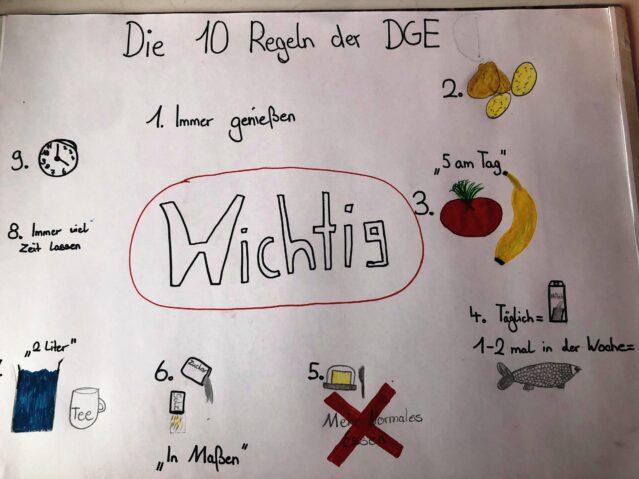 Die 10 Regeln der DGE
1. Immer genießen
2.
"5 am Tag"
3.
4. Täglich =
1-2 mal in der Woche =
5.
essen
6. Zucker
Salz
„In Maßen"
„2 Liter"
Tee
8. Immer viel
Zeit lassen
9.
Wichtig